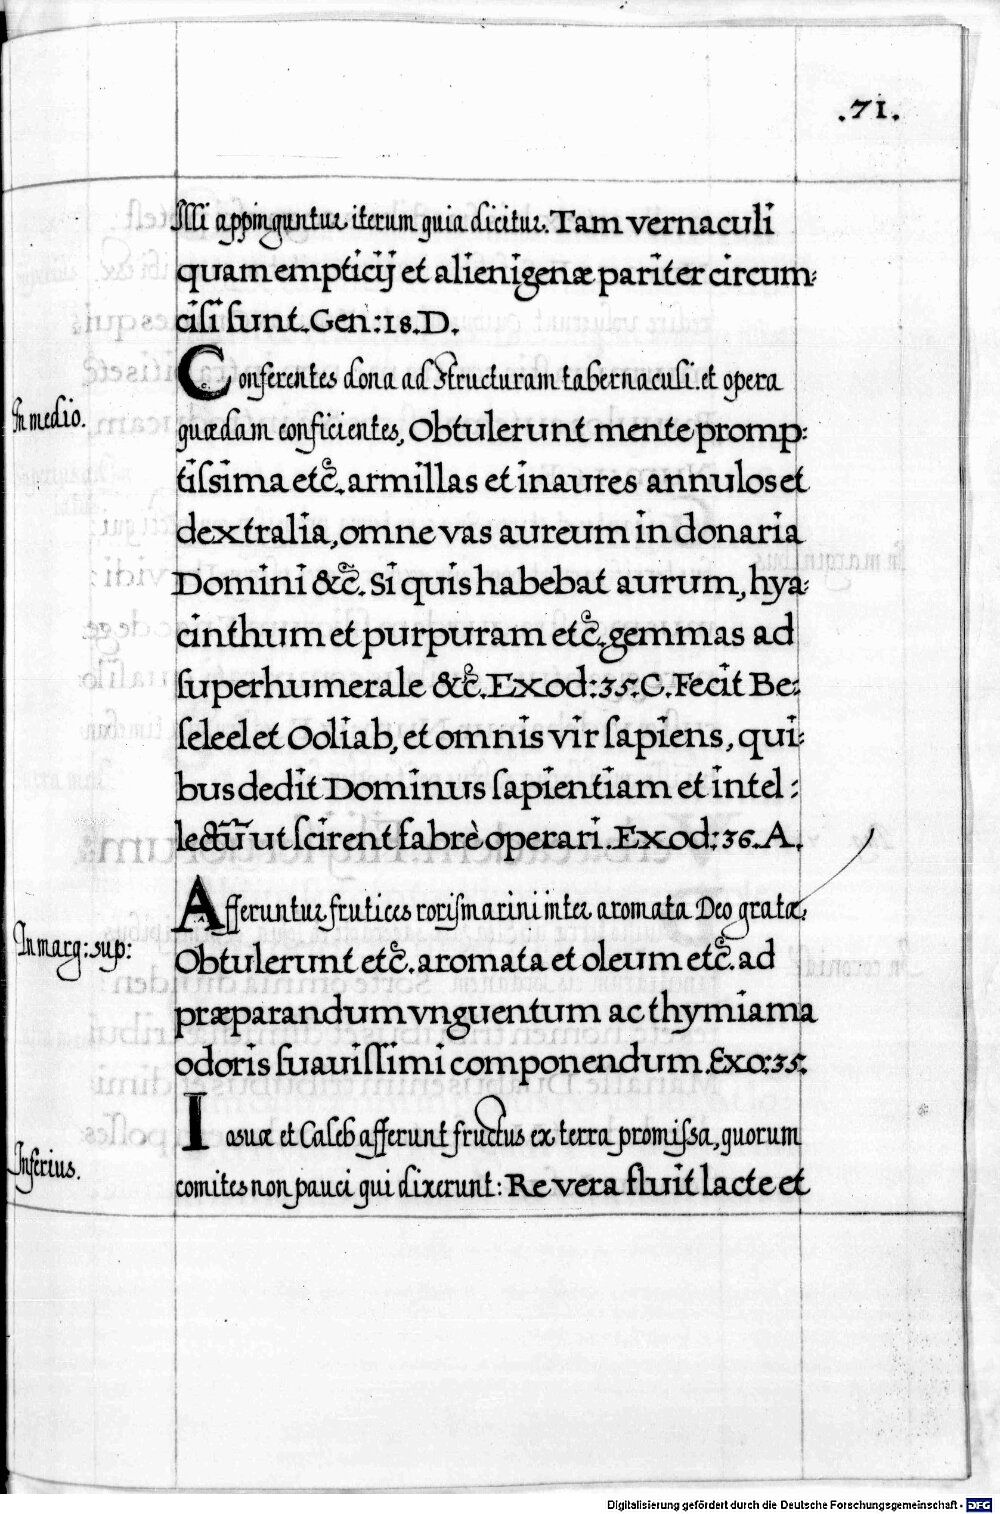 .71.
Illi appinguntur iterum quia dicitur. Tam vernaculi
quam empticij et alienigenæ pariter circum:
cisi sunt. Gen: 18. D.
In medio.
Conferentes dona ad structuram tabernaculi et opera
quædam conficientes, Obtulerunt mente promp:
tissima etc̃. armillas et inaures annulos et
dextralia, omne vas aureum in donaria
Domini &c̃. Si quis habebat aurum, hya:
cinthum et purpuram etc̃. gemmas ad
superhumerale &c̃. Exod: 35. C. Fecit Be:
seleel et Ooliab, et omnis vir sapiens, qui:
bus dedit Dominus sapientiam et intel:
lectũ ut scirent fabrè operari. Exod: 36. A.
In marg: sup:
Afferuntur frutices rorismarini inter aromata Deo gratæ,
Obtulerunt etc̃. aromata et oleum etc̃. ad
præparandum vnguentum ac thymiama
odoris suauissimi componendum. Exo: 35.
Inferius.
Iosuæ et Caleb afferunt fructus ex terra promissa, quorum
comites non pauci qui dixerunt: Revera fluit lacte et
Digitalisierung gefördert durch die Deutsche Forschungsgemeinschaft - DFG